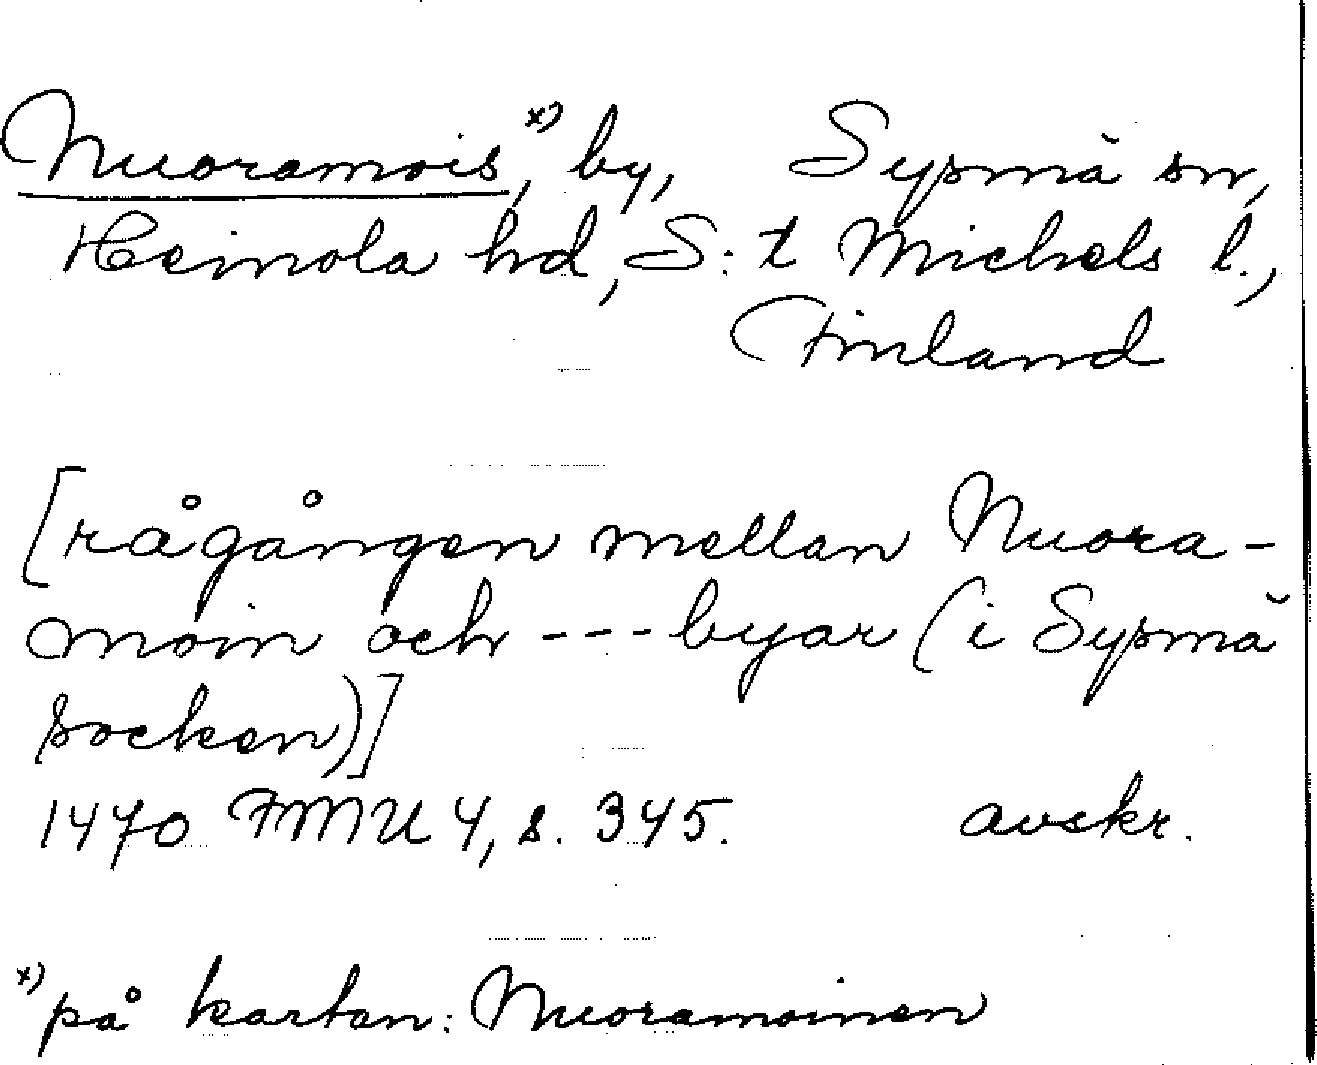 Nuoramois,ˣ⁾ by, Sysmä sn,
Heinola hd, S:t Michels l.,
Finland
[rågången mellan Nuora-
moin och --- byar (i Sysmä
socken)]
1470 FMU 4, s. 345. avskr.
ˣ⁾ på kartan: Nuoramoinen